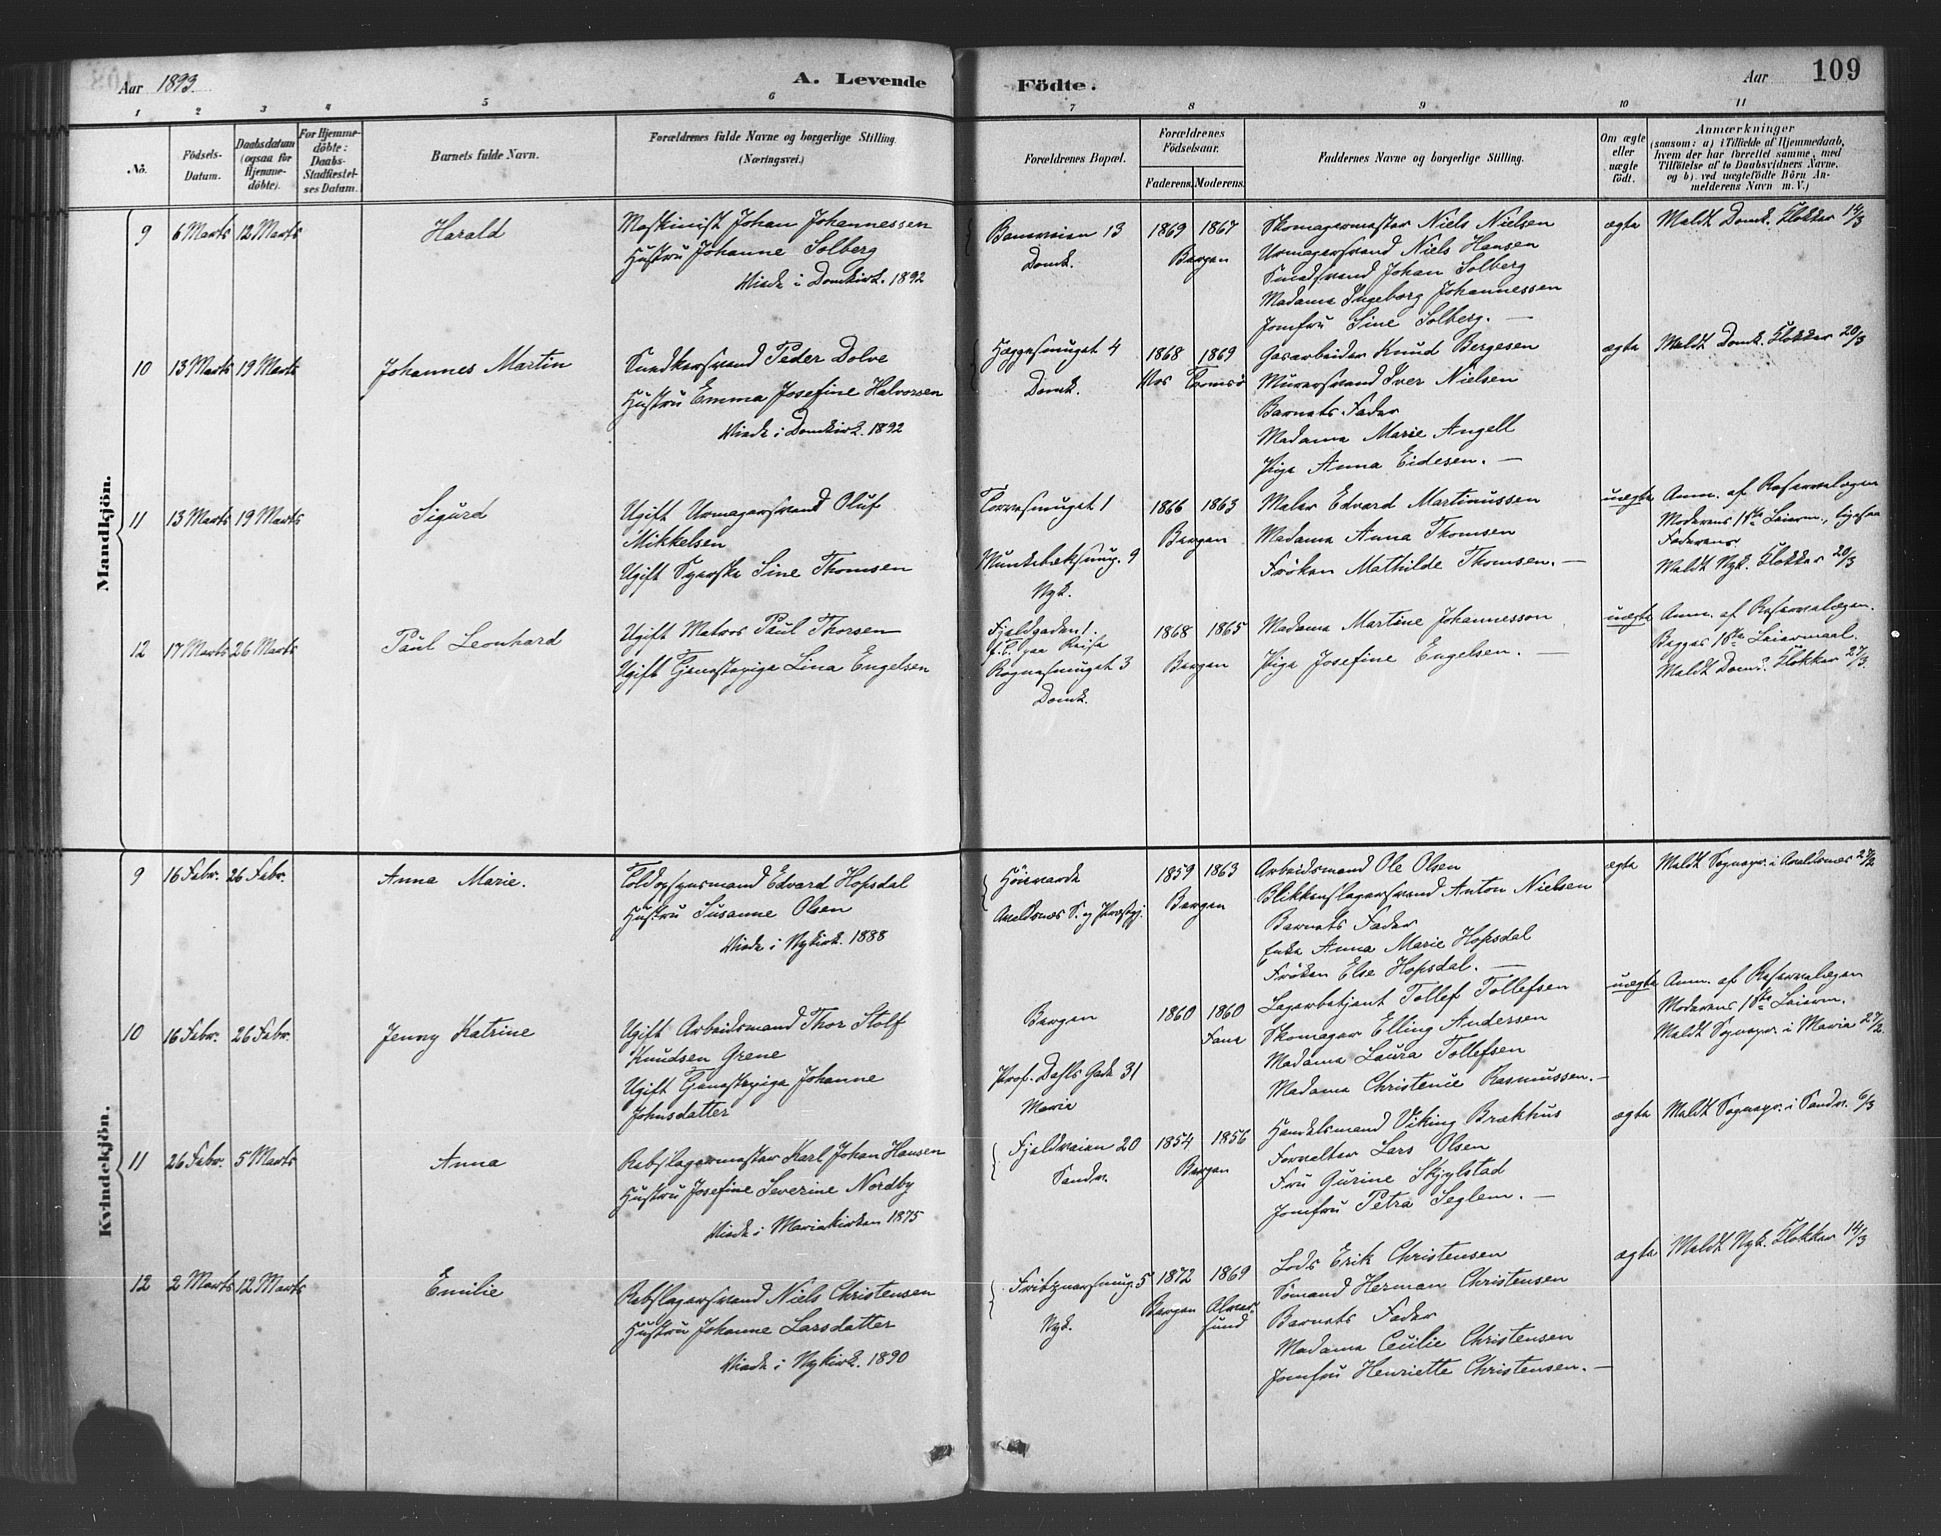 Aar 1893.
A. Levende
Födte.
Aar
109
1 2 3 4 5 6 7 8 9 10 11
No.
Födsels-
Datum.
Daabsdatum
(ogsaa for
Hjemme-
döbte).
For Hjemme-
döbte:
Daabs-
Stadfæstel-
ses Datum.
Barnets fulde Navn.
Forældrenes fulde Navne og borgerlige Stilling
(Næringsvei.)
Forældrenes Bopæl.
Forældrenes
Födselsaar.
Faderens. Moderens.
Faddernes Navne og borgerlige Stilling.
Om ægte
eller
uægte
födt.
Anmærkninger
(saasom: a) i Tilfælde af Hjemmedaab,
hvem der har forrettet samme, med
Tilföielse af to Daabsvidners Navne,
og b) ved uægtefödte Börn An-
melderens Navn m. V.)
Mandkjön.
9 6 Marts 12 Marts
Harald
Maskinist Johan Johannessen
Hustru Johanne Solberg
Viede i Domkirk. 1892
13
Domk.
1869 1867
Bergen
Skomagermester Niels Nielsen
Urmagersvend Niels Hansen
Smedsvend Johan Solberg
Madame Ingeborg Johannessen
Jomfru Sine Solberg. —
ægte
Meldt Domk. Klokker 14/3
10 13 Marts 19 Marts
Johannes Martin
Snedkersvend Peder Dolve
Hustru Emma Josefine Halvorsen
Viede i Domkirk. 1892
Heggesmuget 4
Domk.
1868 1869
Vos Tromsö
Gasarbeider Knud Bergesen
Murersvend Iver Nielsen
Barnets Fader
Madame Marie Angell
Pige Anna Eidesen. —
ægte
Meldt Domk. Klokker 20/3
11 13 Marts 19 Marts
Sigurd
Ugift Urmagersvend Oluf
Mikkelsen
Ugift Syerske Sine Thomsen
Torvesmuget 1
Munkebæksmug. 9
Nyk.
1866 1863
Bergen
Maler Edvard Martinussen
Madame Anna Thomsen
Fröken Mathilde Thomsen. —
uægte
Anm. af Reservelægen
Moderens 1ste Leierm., ligesaa
Faderens
Meldt Nyk. Klokker 20/3
12 17 Marts 26 Marts
Paul Leonhard
Ugift Matros Paul Thorsen
Ugift Tjenestepige Lina Engelsen
Fjeldgaden 1.
f. T. paa Reise
Rognesmuget 3
Domk.
1868 1865
Bergen
Madame Martine Johannesson
Pige Josefine Engelsen. —
uægte
Anm. af Reservelægen.
Begges 1ste Leiermaal.
Meldt Domk. Klokker 27/3.
Kvindekjön.
9 16 Febr. 26 Febr.
Anna Marie.
Toldopsynsmand Edvard Hopsdal
Hustru Susanne Olsen
Viede i Nykirk. 1888
Höievarde
Avaldsnæs S. og Præstgj.
1859 1863
Bergen
Arbeidsmand Ole Olsen
Blikkenslagersvend Anton Nielsen
Barnets Fader
Enke Anna Marie Hopsdal
Fröken Else Hopsdal. —
ægte
Meldt Sognepr. i Avaldsnæs 27/2
10 16 Febr. 26 Febr.
Jenny Katrine
Ugift Arbeidsmand Thor Stolf
Knudsen Grene
Ugift Tjenestepige Johanne
Johnsdatter
Bergen
Prof. Dahls Gade 31
Maria
1860 1860
Fane
Lagerbetjent Tollef Tollefsen
Skomager Elling Andersen
Madame Laura Tollefsen
Madame Christence Rasmussen. —
uægte
Anm. af Reservelægen
Moderens 1ste Leierm.
Meldt Sognepr. i Maria 27/2.
11 26 Febr. 5 Marts
Anna
Rebslagermester Karl Johan Hansen
Hustru Josefine Severine Nordby
Viede i Mariakirken 1875
Fjeldveien 20
Sandv.
1854 1856
Bergen
Handelsmand Viking Brækhus
Forvalter Lars Olsen
Fru Gurine Skjylstad
Jomfru Petra Seglem. —
ægte
Meldt Sognepr. i Sandv. 6/3
12 2 Marts 12 Marts
Emilie
Rebslagersvend Niels Christensen
Hustru Johanne Larsdatter
Viede i Nykirk. 1890
Fritznersmug. 5
Nyk.
1872 1869
Bergen
sund
Lods Erik Christensen
Sömand Herman Christensen
Barnets Fader
Madame Cecilie Christensen
Jomfru Henriette Christensen. —
ægte
Meldt Nyk. Klokker 14/3